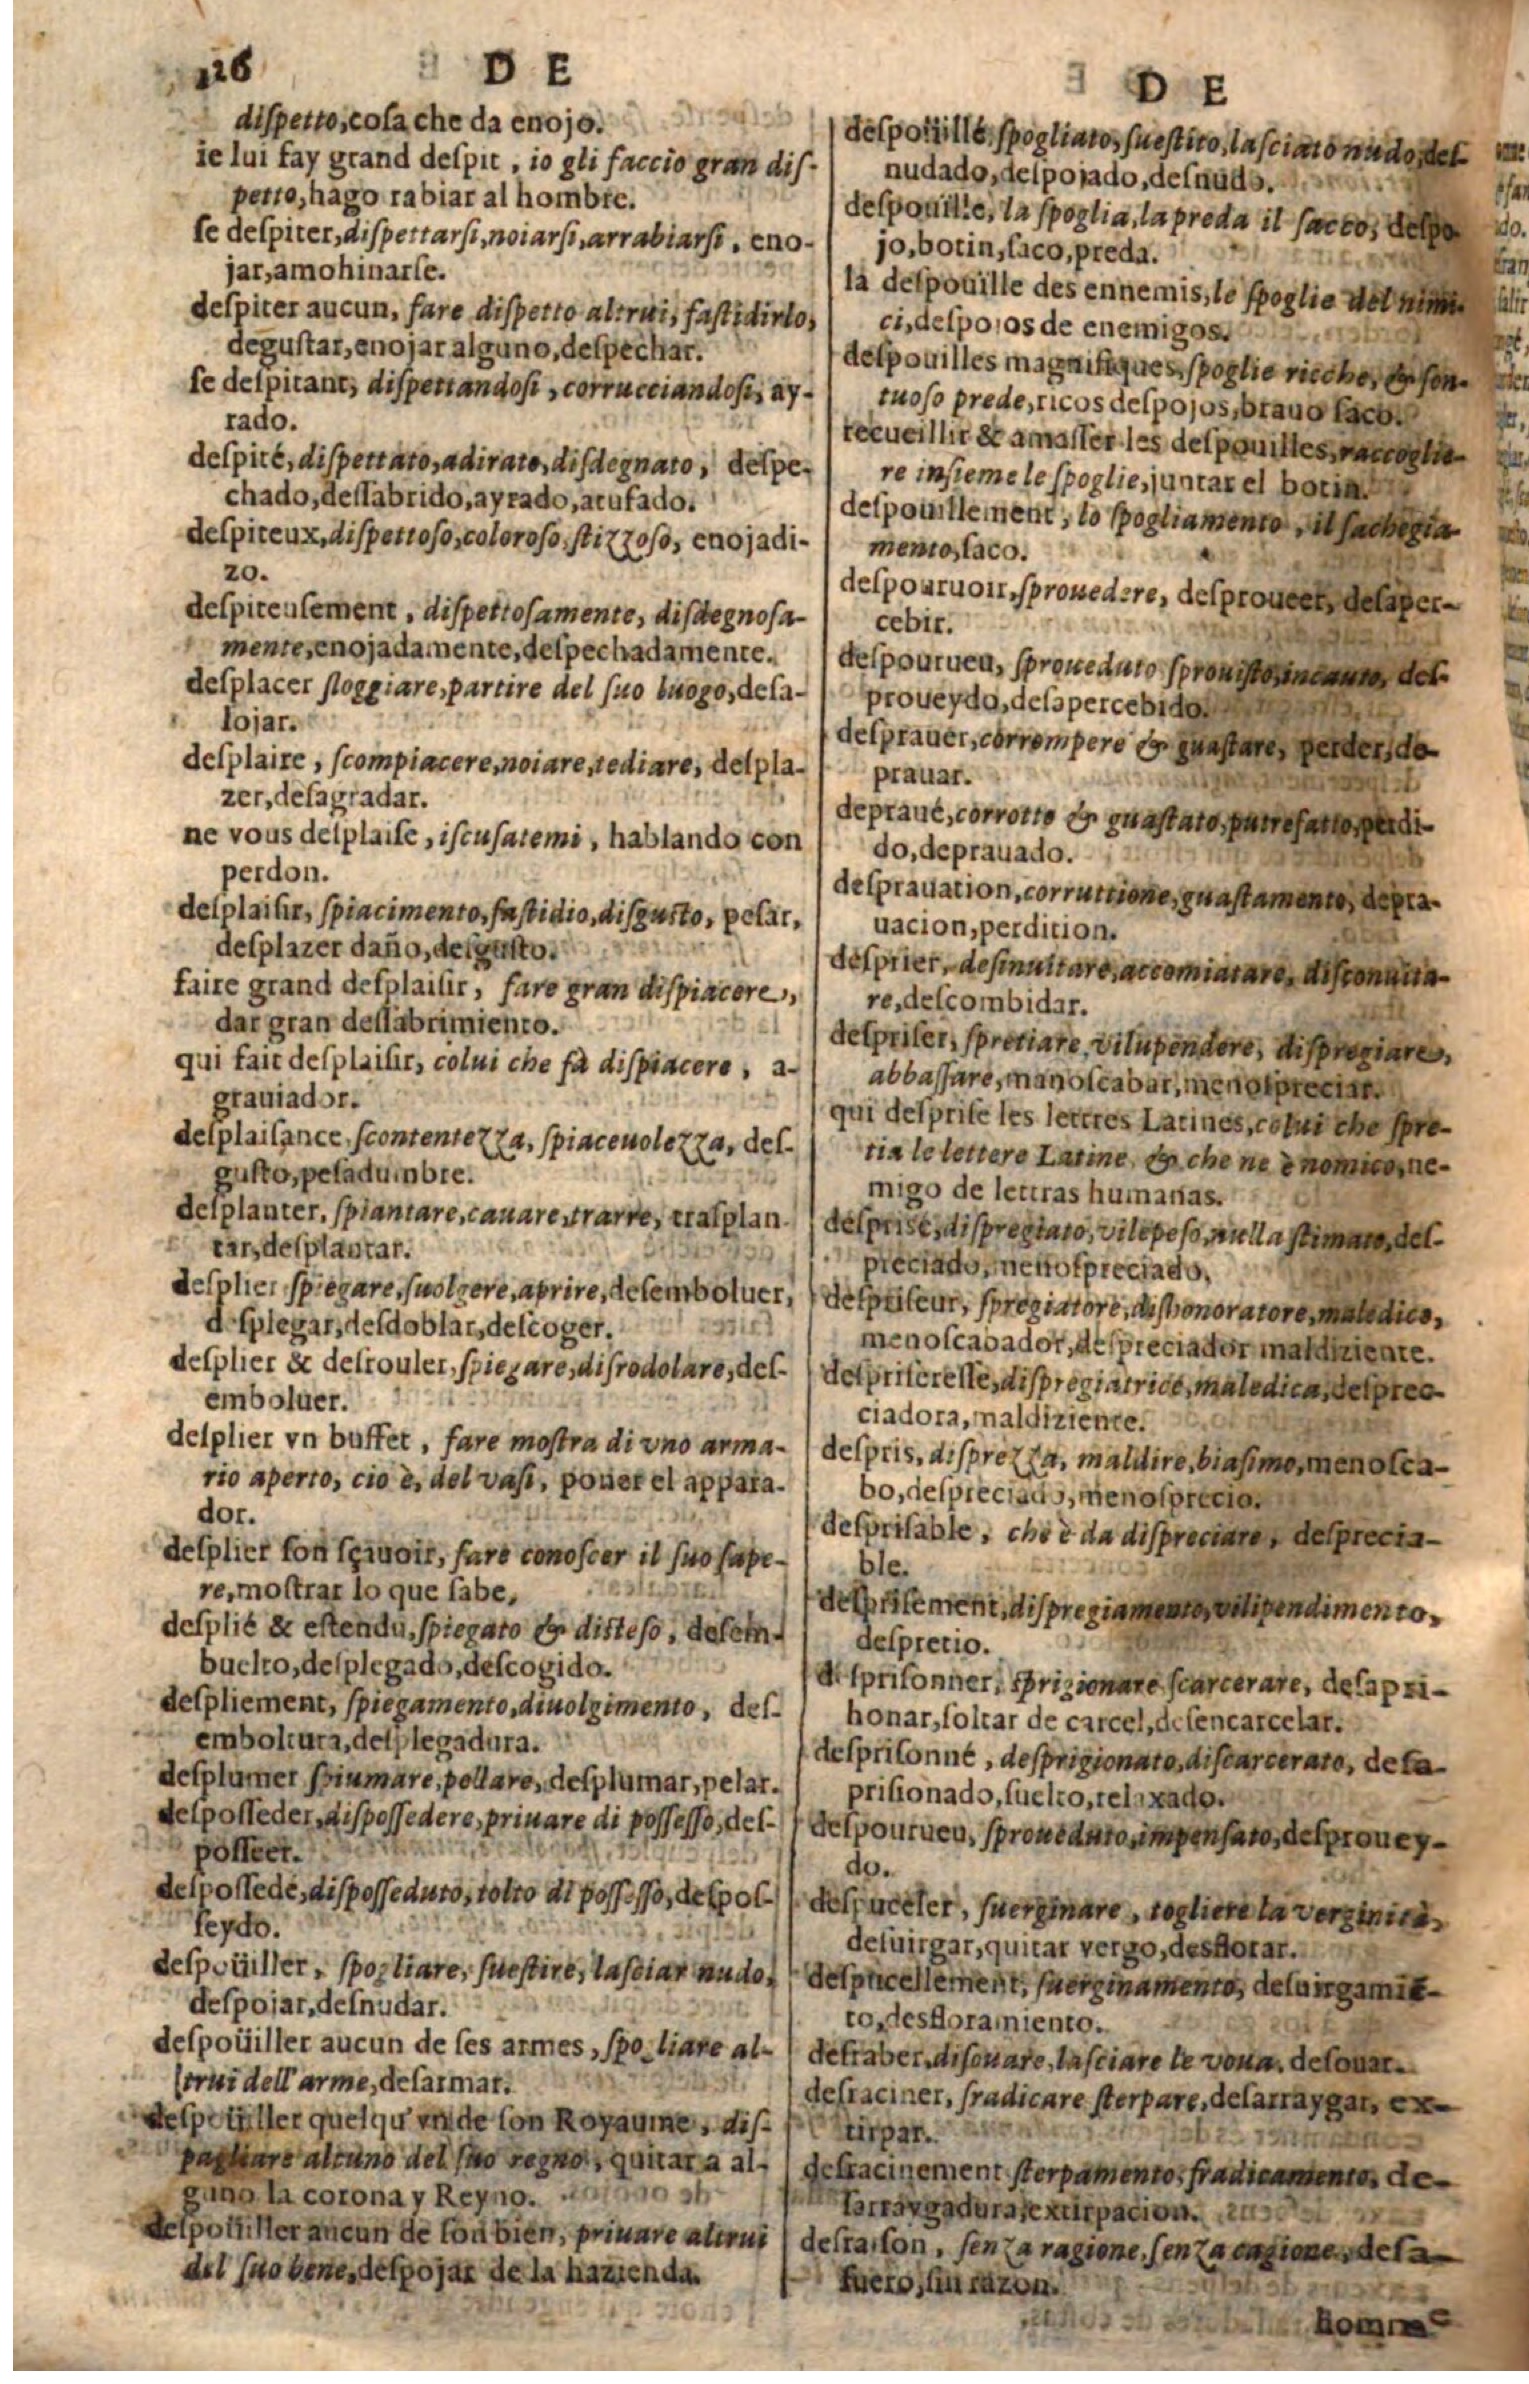 126 D E
dispetto,cosa che da enojo.
ie lui fay grand despit , io gli faccio gran dis-
petto,hago rabiar al hombre.
se despiter,dispettarsi,noiarsi,arrabiarsi , eno-
jar,amohinarse.
despiter aucun, fare dispetto altrui, fastidirlo,
degustar,enojar alguno,despechar.
se despitant, dispettandosi , corrucciandosi, ay-
rado.
despité, dispettato,adirato,disdegnato , despe-
chado,dessabrido,ayrado,atufado.
despiteux,dispettoso,coloroso,stizzoso, enojadi-
zo.
despiteusement , dispettosamente, disdegnosa-
mente,enojadamente,despechadamente.
desplacer sloggiare,partire del suo luogo,desa-
lojar.
desplaire , scompiacere,noiare,tediare, despla-
zer,desagradar.
ne vous desplaise , iscusatemi , hablando con
perdon.
desplaisir, spiacimento,fastidio,disgusto, pesar,
desplazer daño,desgusto.
faire grand desplaisir, fare gran dispiacere,
dar gran dessabrimiento.
qui fait desplaisir, colui che fà dispiacere , a-
grauiador.
desplaisance,scontentezza, spiaceuolezza, des-
gusto,pesadumbre.
desplanter, spiantare,cauare,trarre, trasplan-
tar,desplantar.
desplier spiegare,suolgere,aprire,desemboluer,
desplegar,desdoblar,descoger.
desplier & desrouler,spiegare,disrodolare,des-
emboluer.
desplier vn buffet , fare mostra di vno arma-
rio aperto, cio è, del vasi, poner el appara-
dor.
desplier son sçauoir, fare conoscer il suo sape-
re,mostrar lo que sabe,
desplié & estendu,spiegato & disteso , desem-
buelto,desplegado,descogido.
despliement, spiegamento,diuolgimento , des-
emboltura,desplegadura.
desplumer spiumare,pellare, desplumar,pelar.
desposseder,dispossedere,priuare di possesso,des-
posseer.
despossedé,disposseduto,tolto di possesso,despos-
seydo.
despoüiller , spogliare, suestire, lasciar nudo,
despojar,desnudar.
despoüiller aucun de ses armes , spogliare al-
trui dell'arme,desarmar.
despoüiller quelqu'vn de son Royaume , dis-
pagliare altuno del suo regno , quitar a al-
guno la corona y Reyno.
despoüiller aucun de son bien, priuare altrui
del suo bene,despojar de la hazienda.
D E
despoüillé spogliato,suestito,lasciato nudo,des-
nudado,despojado,desnudo.
despouille, la spoglia,la preda il sacco, despo-
jo,botin,saco,preda.
la despouille des ennemis,le spoglie del nimi-
ci,despojos de enemigos.
despouilles magnifiques,spoglie ricche, & son-
tuoso prede,ricos despojos,brauo saco.
recueillir & amasser les despouilles,raccoglie-
re insieme le spoglie,juntar el botin.
despouillement , lo spogliamento , il sachegia-
mento,saco.
despouruoir,sprouedere, desproueer, desaper-
cebir.
despourueu, sproueduto sprouisto,incauto, des-
proueydo,desapercebido.
desprauer,corrompere & guastare, perder,de-
prauar.
depraué,corrotto & guastato,putrefatto,perdi-
do,deprauado.
desprauation,corruttione,guastamento, depra-
uacion,perdition.
desprier, desinuitare,accomiatare, disconuita-
re,descombidar.
despriser, spretiare,vilupendere, dispregiare,
abbassare,manoscabar,menospreciar.
qui desprise les lettres Latines,colui che spre-
tia le lettere Latine & che ne è nomico,ne-
migo de lettras humanas.
desprisé,dispregiato,vilepeso,nulla stimato,des-
preciado,menospreciado.
despriseur, spregiatore,dishonoratore,maledico,
menoscabador,despreciador maldiziente.
despriseresse,dispregiatrice,maledica,desprec-
ciadora,maldiziente.
despris, disprezza, maldire,biasimo,menosca-
bo,despreciado,menosprecio.
desprisable , che è da dispreciare , desprecia-
ble.
desprisement,dispregiamento,vilipendimento,
despretio.
desprisonner, sprigionare scarcerare, desapri-
honar,soltar de carcel,desencarcelar.
desprisonné , desprigionato,discarcerato, desa-
prisionado,suelto,relaxado.
despourueu, sproueduto,impensato,desprouey-
do.
despuceler , suerginare , togliere la verginità,
desuirgar,quitar vergo,desflorar.
despucellement, suerginamento, desuirgamiẽ-
to,desfloramiento.
desraber,disouare,lasciare le voua, desouar.
desraciner, sradicare sterpare,desarraygar, ex-
tirpar.
desracinement sterpamento,sradicamento, de-
sarraygadura,extirpacion.
desraison , senza ragione,senza cagione, desa-
fuero,sin razon.
homme